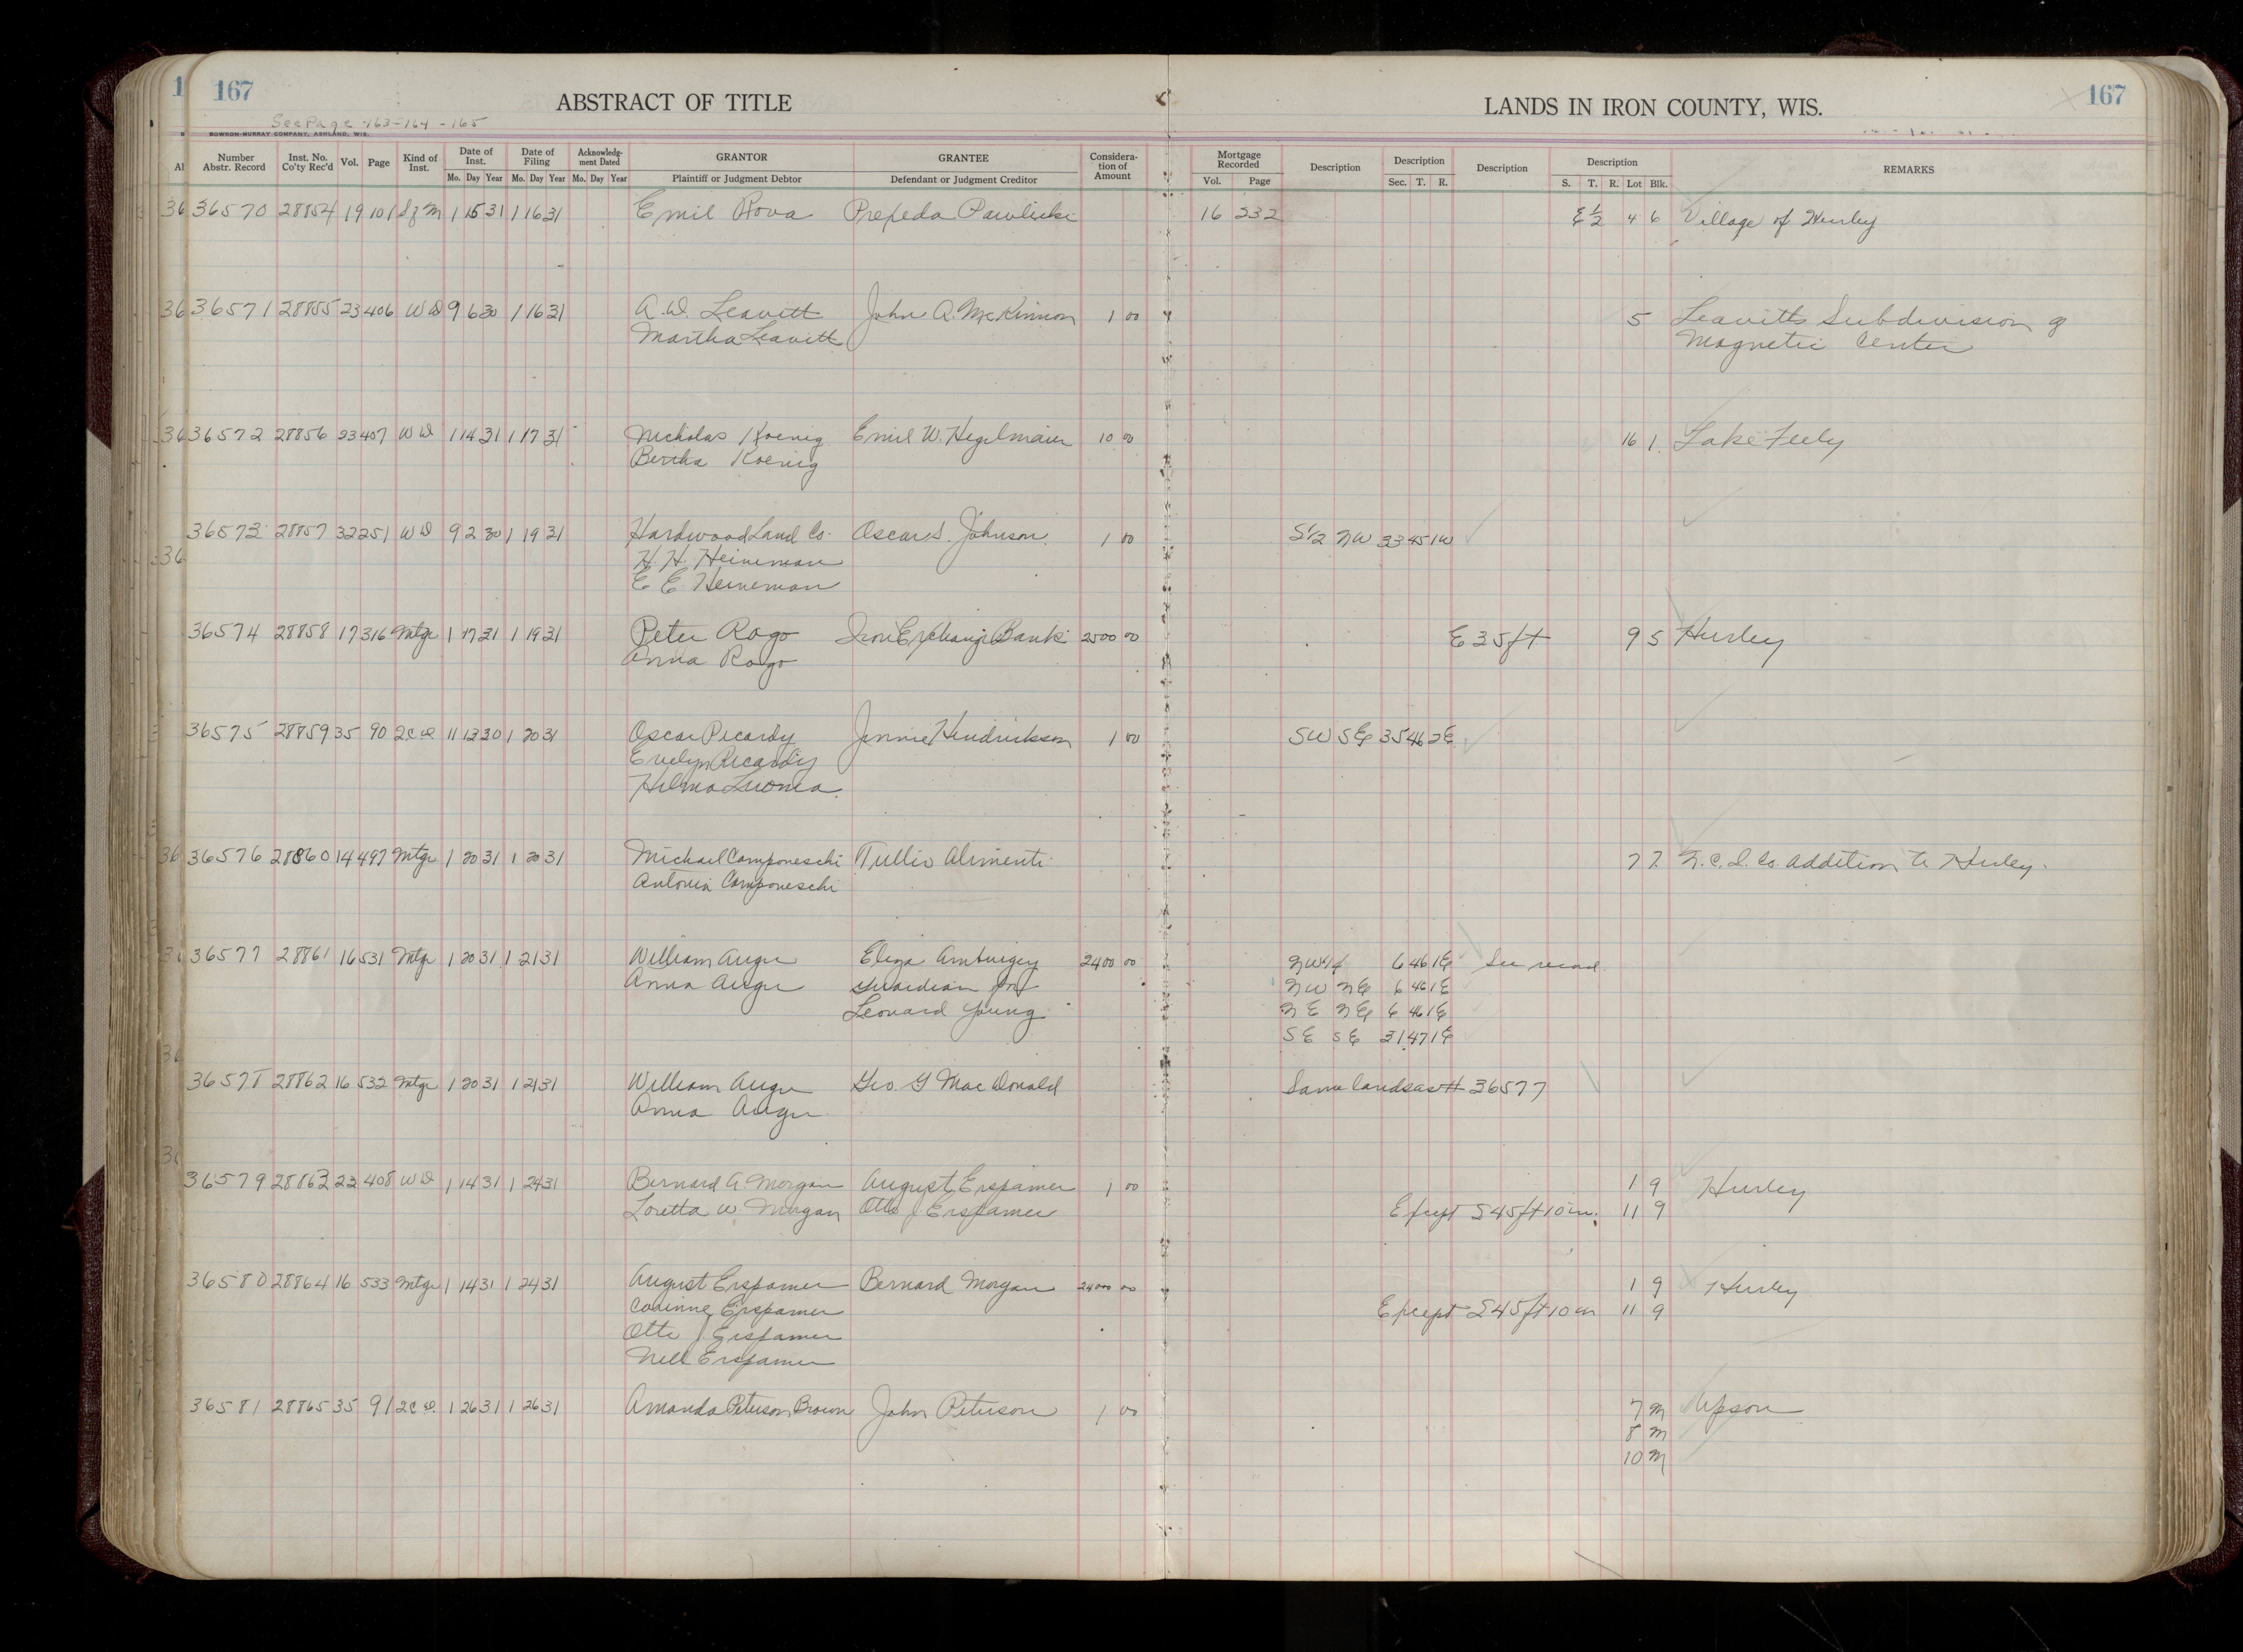 167
ABSTRACT OF TITLE
LANDS IN IRON COUNTY, WIS.
167
See Page -163-164-165
BOWRON-MURRAY COMPANY, ASHLAND, WIS.
Number Abstr. Record Inst. No. Co'ty Rec'd Vol. Page Kind of Inst. Date of Inst. Mo. Day Year Date of Filing Mo. Day Year Acknowledgment Dated Mo. Day Year GRANTOR Plaintiff or Judgment Debtor GRANTEE Defendant or Judgment Creditor Consideration of Amount Mortgage Recorded Vol. Page Description Description Sec. T. R. Description Description S. T. R. Lot Blk. REMARKS
36570 28854 19 101 Sf M 1 15 31 1 16 31 Emil Rova Prepeda Pawlicki 16 232 E 1/2 4 6 Village of Hurley
36571 28855 23 406 WD 9 6 30 1 16 31 A.W. Leavitt John A. McKinnon 1 00 5 Leavitts Subdivision of
Martha Leavitt Magnetic Center
36572 28856 23 407 WD 1 14 31 1 17 31 Nicholas Koenig Emil W. Hegelmaier 10 00 16 1 Lake Feely
Bertha Koenig
36573 28857 32 251 WD 9 2 30 1 19 31 Hardwood Land Co. Oscar S. Johnson 1 00 S1/2 NW 33 45 1W
H. H. Heineman
E E Heineman
36574 28858 17 316 Mtge 1 17 31 1 19 31 Peter Rogo Iron Exchange Bank 2500 00 E 35 ft 9 5 Hurley
Anna Rogo
36575 28859 35 90 2CD 11 13 30 1 20 31 Oscar Picardy Jennie Hendrickson 1 00 SW SE 35 46 2E
Evelyn Picardy
Hilma Luoma
36576 28860 14 497 Mtge 1 20 31 1 20 31 Michael Camponeschi Tullio Alimenti 7 7 N.C.I. Co. Addition to Hurley
Antonia Camponeschi
36577 28861 16 531 Mtge 1 20 31 1 21 31 William Auger Eliza 2400 00 NW1/4 6 46 1E See record
Anna Auger Guardian for NW NE 6 46 1E
Leonard Young NE NE 6 46 1E
SE SE 31 47 1E
36578 28862 16 532 Mtge 1 20 31 1 21 31 William Auger Geo. G MacDonald Same lands as # 36577
Anna Auger
36579 28863 23 408 WD 1 14 31 1 24 31 Bernard A. Morgan August Erspamer 1 00 1 9 Hurley
Loretta W. Morgan Otto J Erspamer Except S 45 ft 10 in. 11 9
36580 28864 16 533 Mtge 1 14 31 1 24 31 August Erspamer Bernard Morgan 24000 00 1 9 Hurley
Corinne Erspamer Except S 45 ft 10 in 11 9
Otto J Erspamer
Nell Erspamer
36581 28865 35 91 2CD 1 26 31 1 26 31 Amanda Peterson Brown John Peterson 1 00 7 M Upson
8 M
10 M